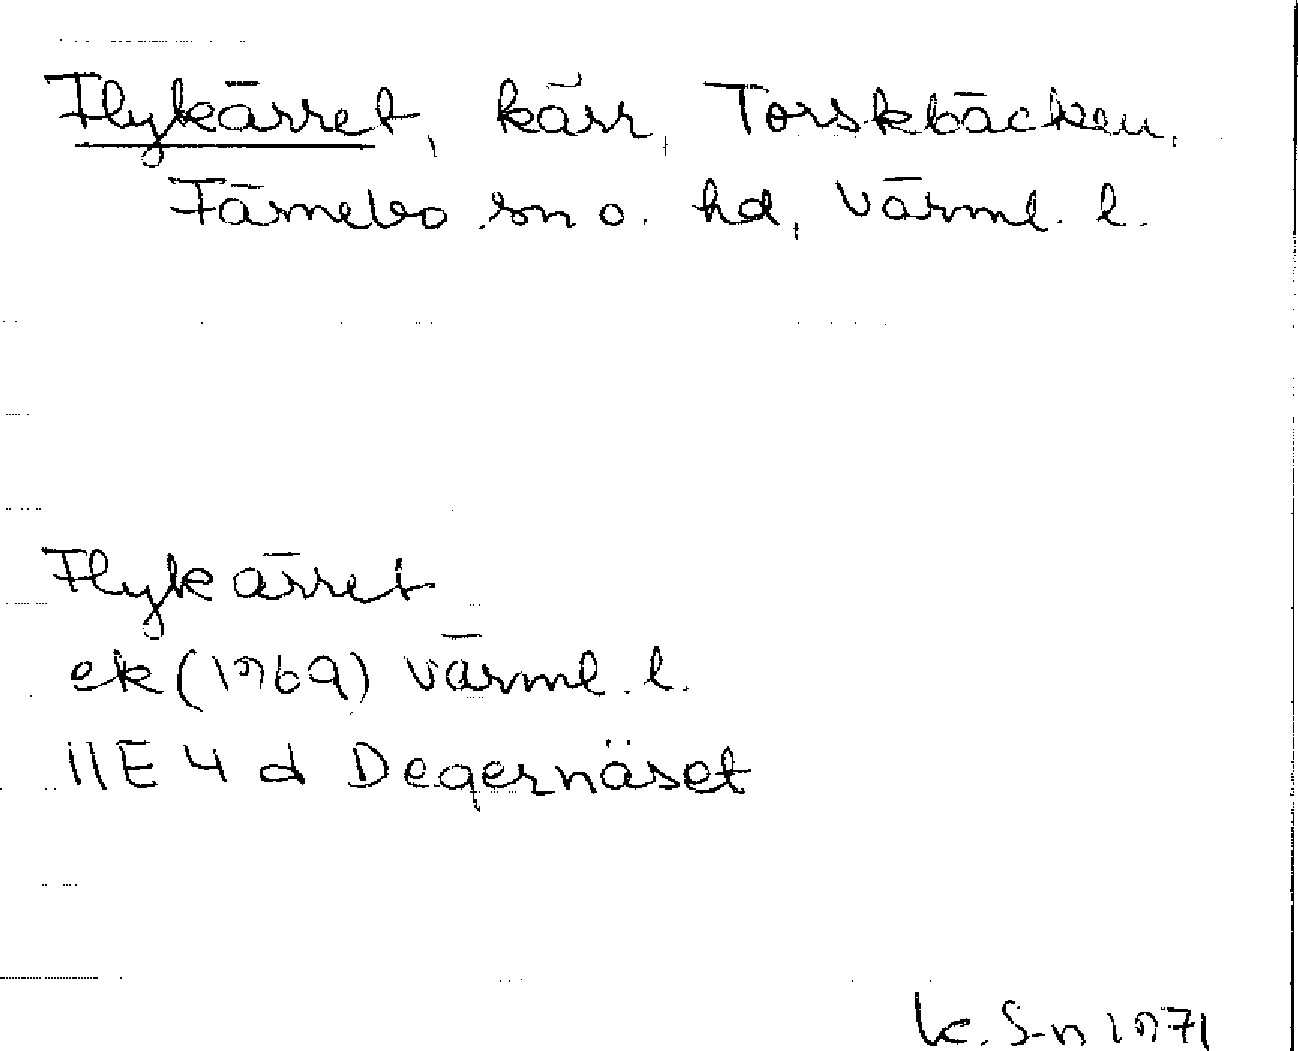 Flykärret, kärr, Torskbäcken,
Färnebo sn o. hd, Värml. l.
Flykärret
ek (1969) Värml. l.
11E 4 d Degernäset
K. S-n 1971